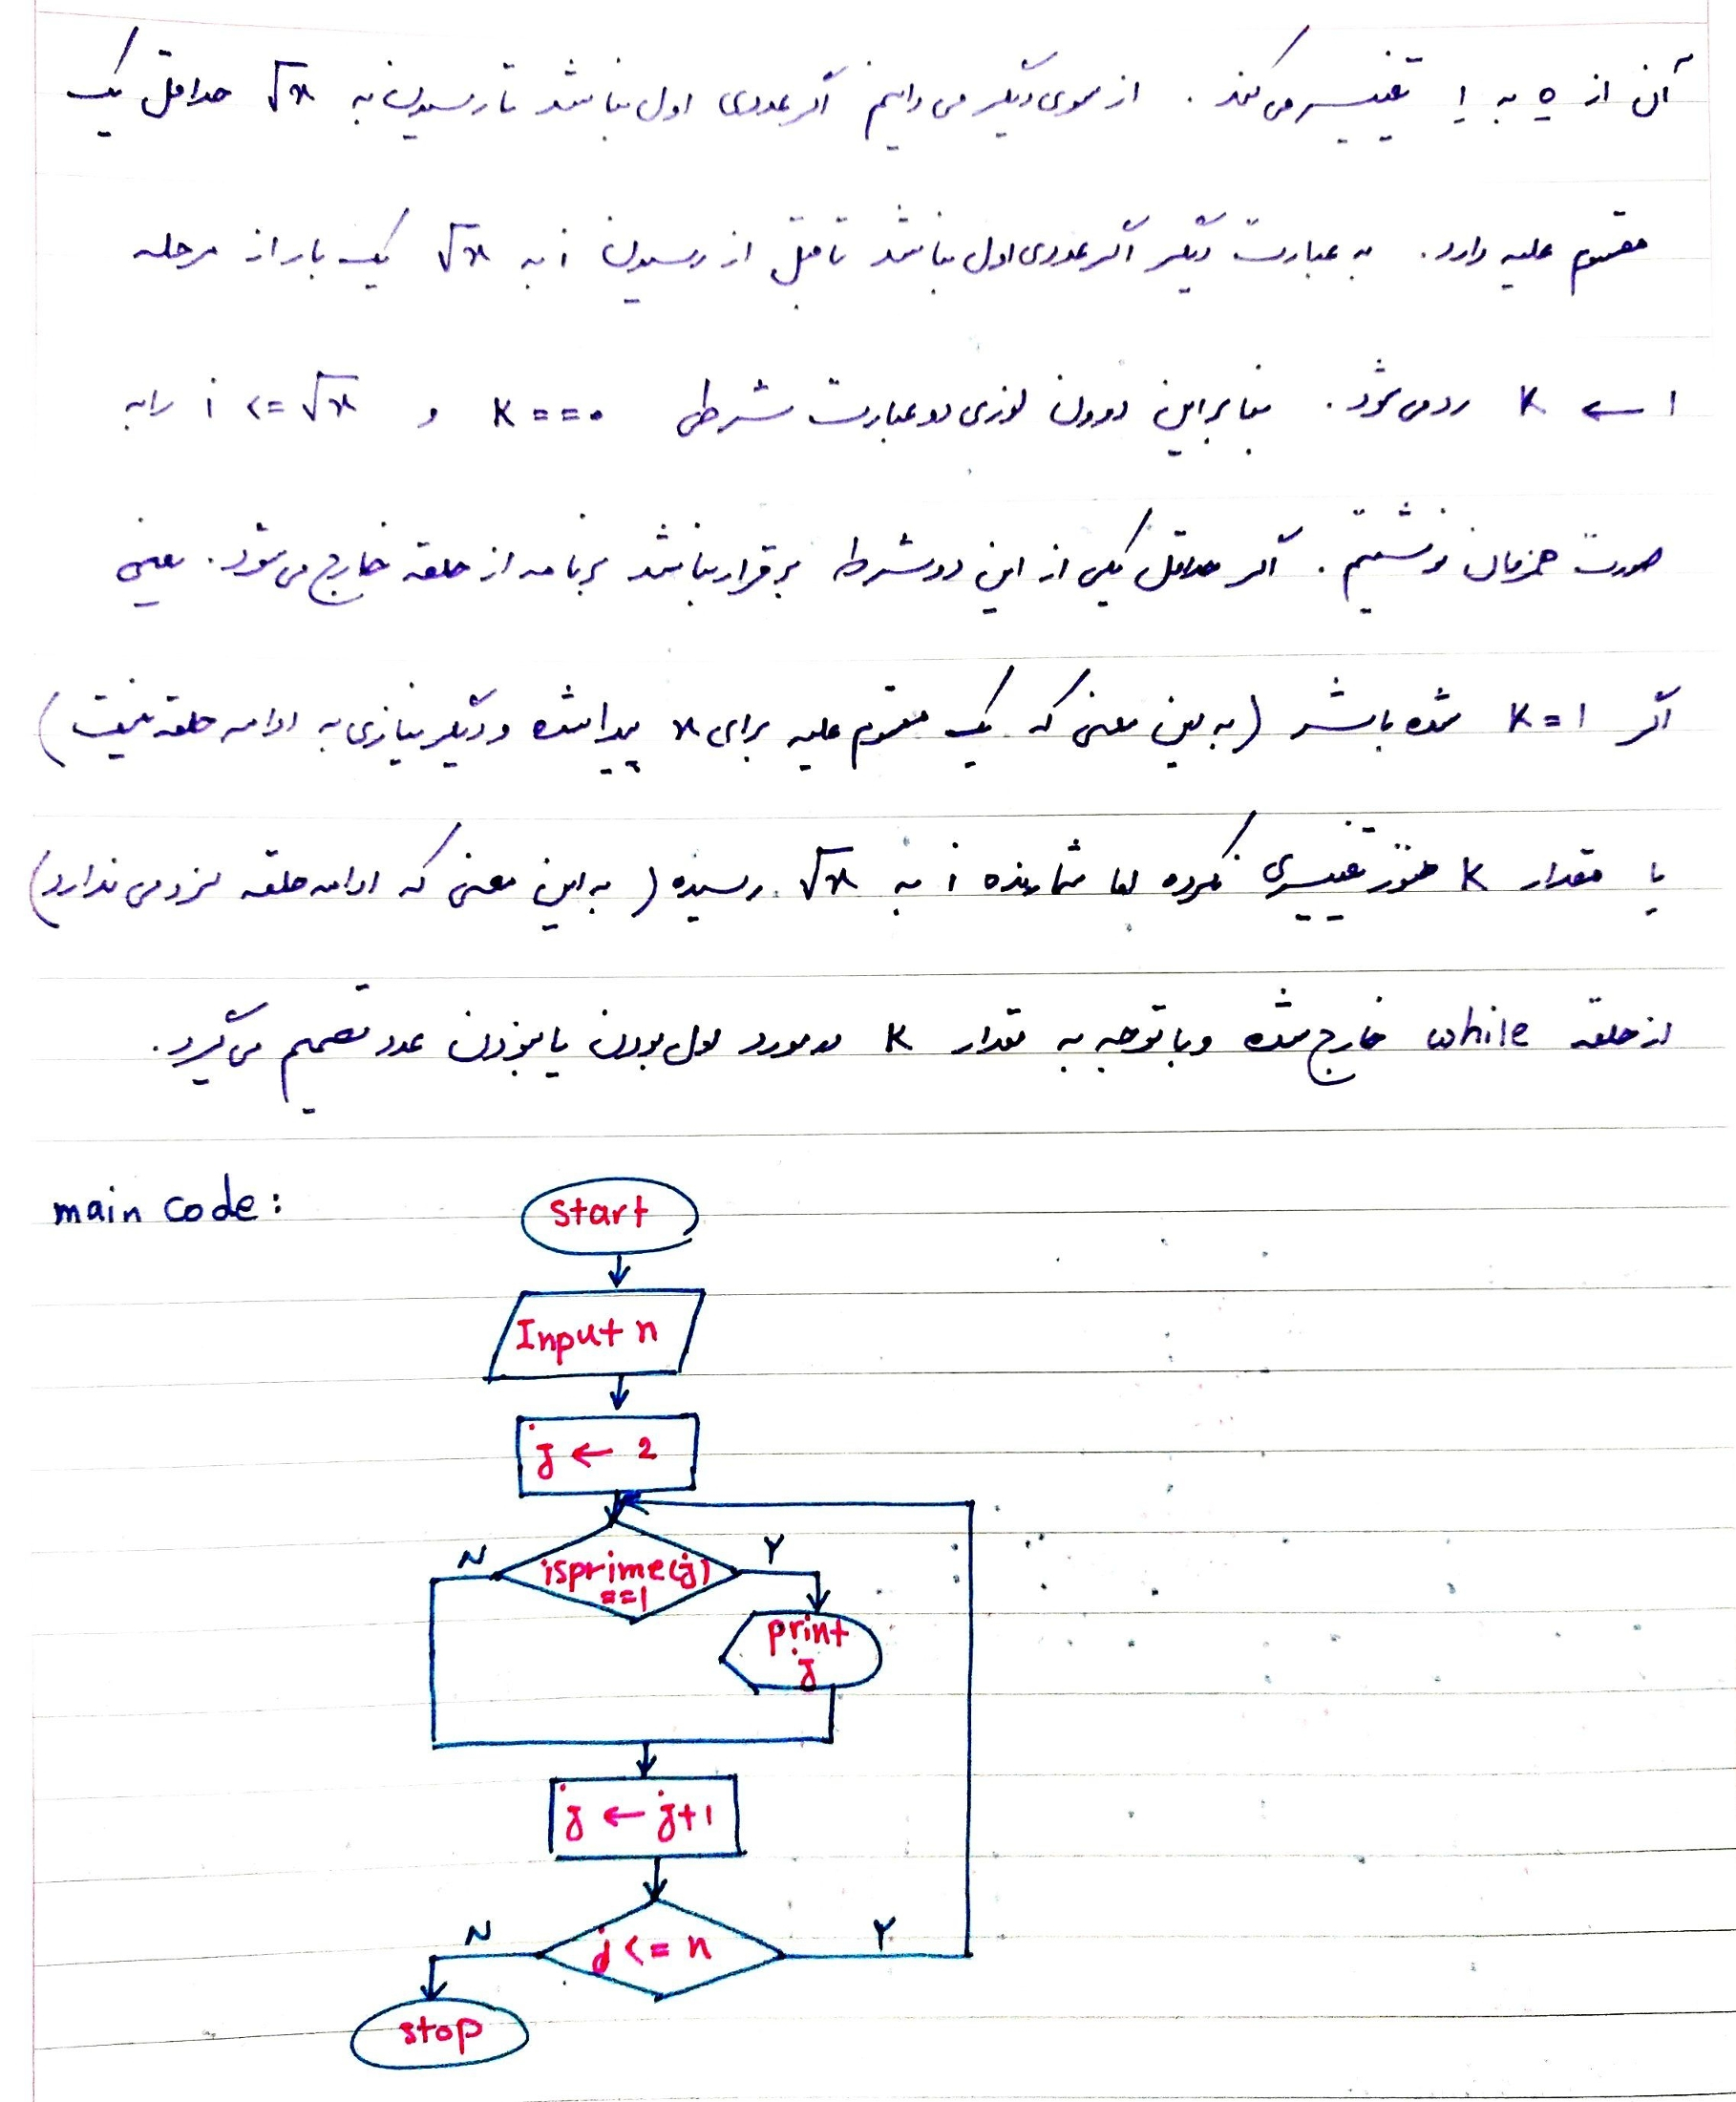 آن از ه به ۱ تغییر می کند . از سوی دیگر می دانیم اگر عددی اول نباشد تا رسیدن به √x حداقل یک
مقسوم علیه دارد . به عبارت دیگر اگر عددی اول نباشد تا قبل از رسیدن i به √x یک بار از مرحله
K ← ۱ رد می شود . بنابراین درون لوزی دو عبارت شرطی K == ۰ و i <= √x را به
صورت همزمان نوشتیم . اگر حداقل یکی از این دو شرط برقرار نباشد برنامه از حلقه خارج می شود . یعنی
اگر K = ۱ شده باشد (به این معنی که یک مقسوم علیه برای x پیدا شده و دیگر نیازی به ادامه حلقه نیست)
یا مقدار K هنوز تغییری نکرده اما شمارنده i به √x رسیده (به این معنی که ادامه حلقه لزومی ندارد)
از حلقه while خارج شده و با توجه به مقدار K در مورد اول بودن یا نبودن عدد تصمیم می گیرد .
main code:
start
Input n
j ← 2
isprime(j)
==1
N
Y
print
j
j ← j+1
j <= n
N
Y
stop